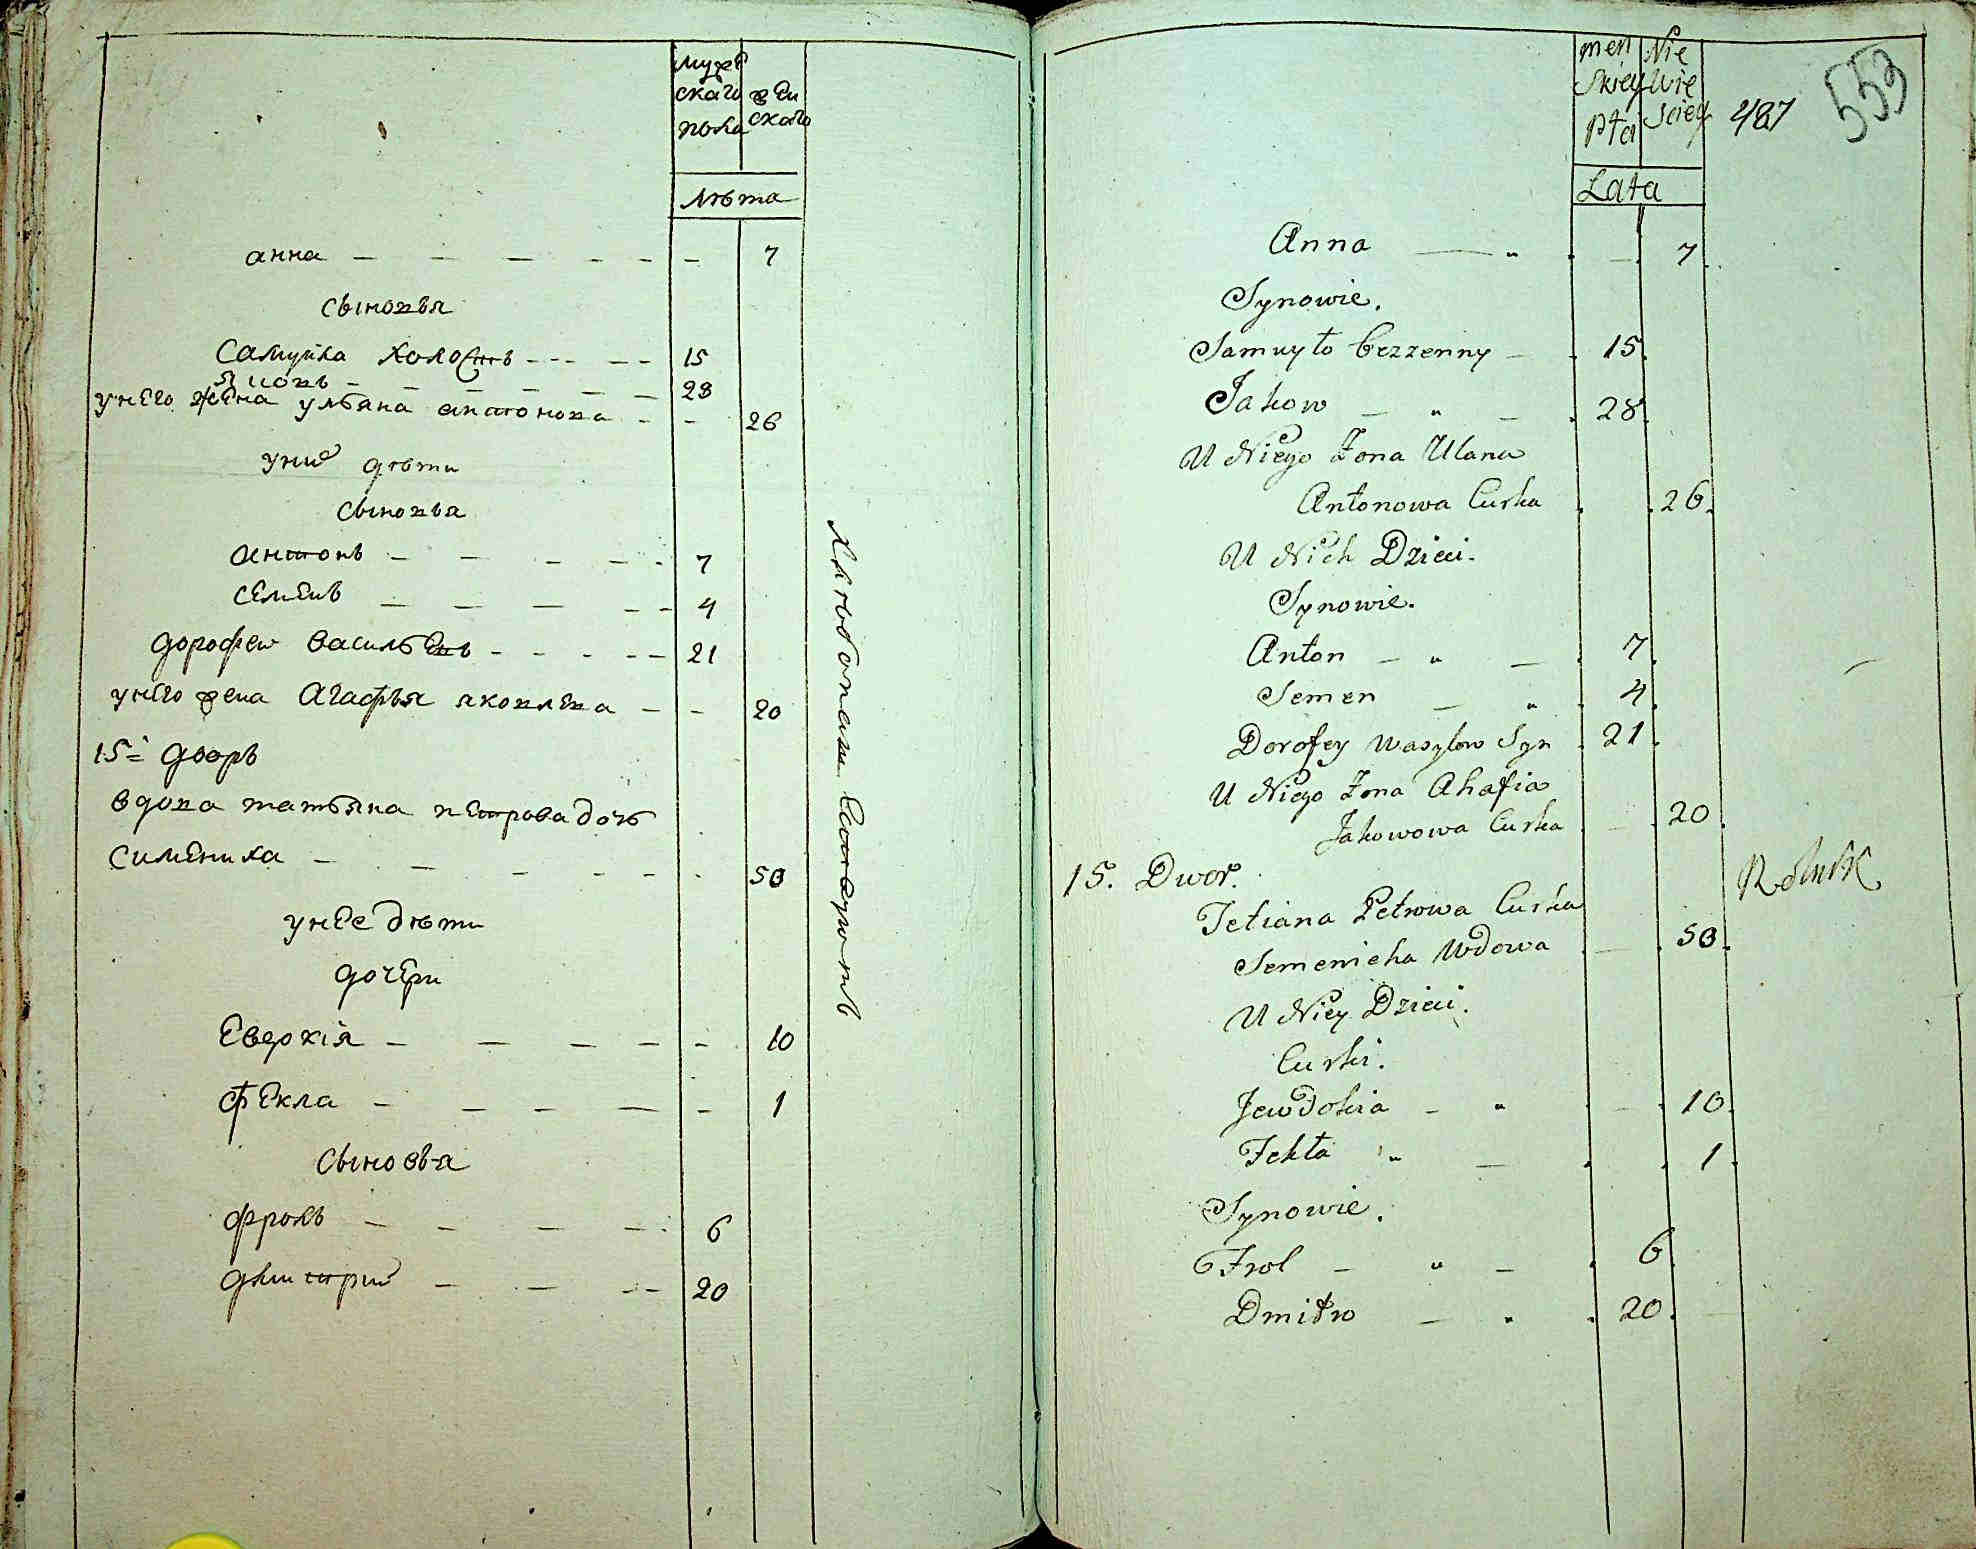 муже
скаго
пола
жен
скаго
лѣта
анна 7
сыновья
Самуйла холостъ 15
Яковъ 28
унего жена ульяна антонова 26
уних дѣти
сыновья
антонъ 7
семенъ 4
дорофеи васильевъ 21
унего жена Агафья яковлева 20
15й дворъ
вдова татьяна петрова дочь
Сименика 50
унее дѣти
дочери
Евдокія 10
фекла 1
сыновья
фролъ 6
дмитрий 20
Хлебопашецъ
męż
skiey
płci
Nie
wie
sciey
487
553
Lata
Anna 7
Synowie.
Samuyło bezzenny 15
Jakow 28
U Niego Żona Ulana
Antonowa Curka 26
U Nich Dzieci.
Synowie.
Anton 7
Semen 4
Dorofey Wasylow Syn 21
U Niego Żona Ahafia
Jakowowa Curka 20
15. Dwor.
Rolnik
Tetiana Petrowa Curka
Semenicha Wdowa 50
U Niey Dzieci.
Curki.
Jewdokia 10
Fekła 1
Synowie.
Frol 6
Dmitro 20